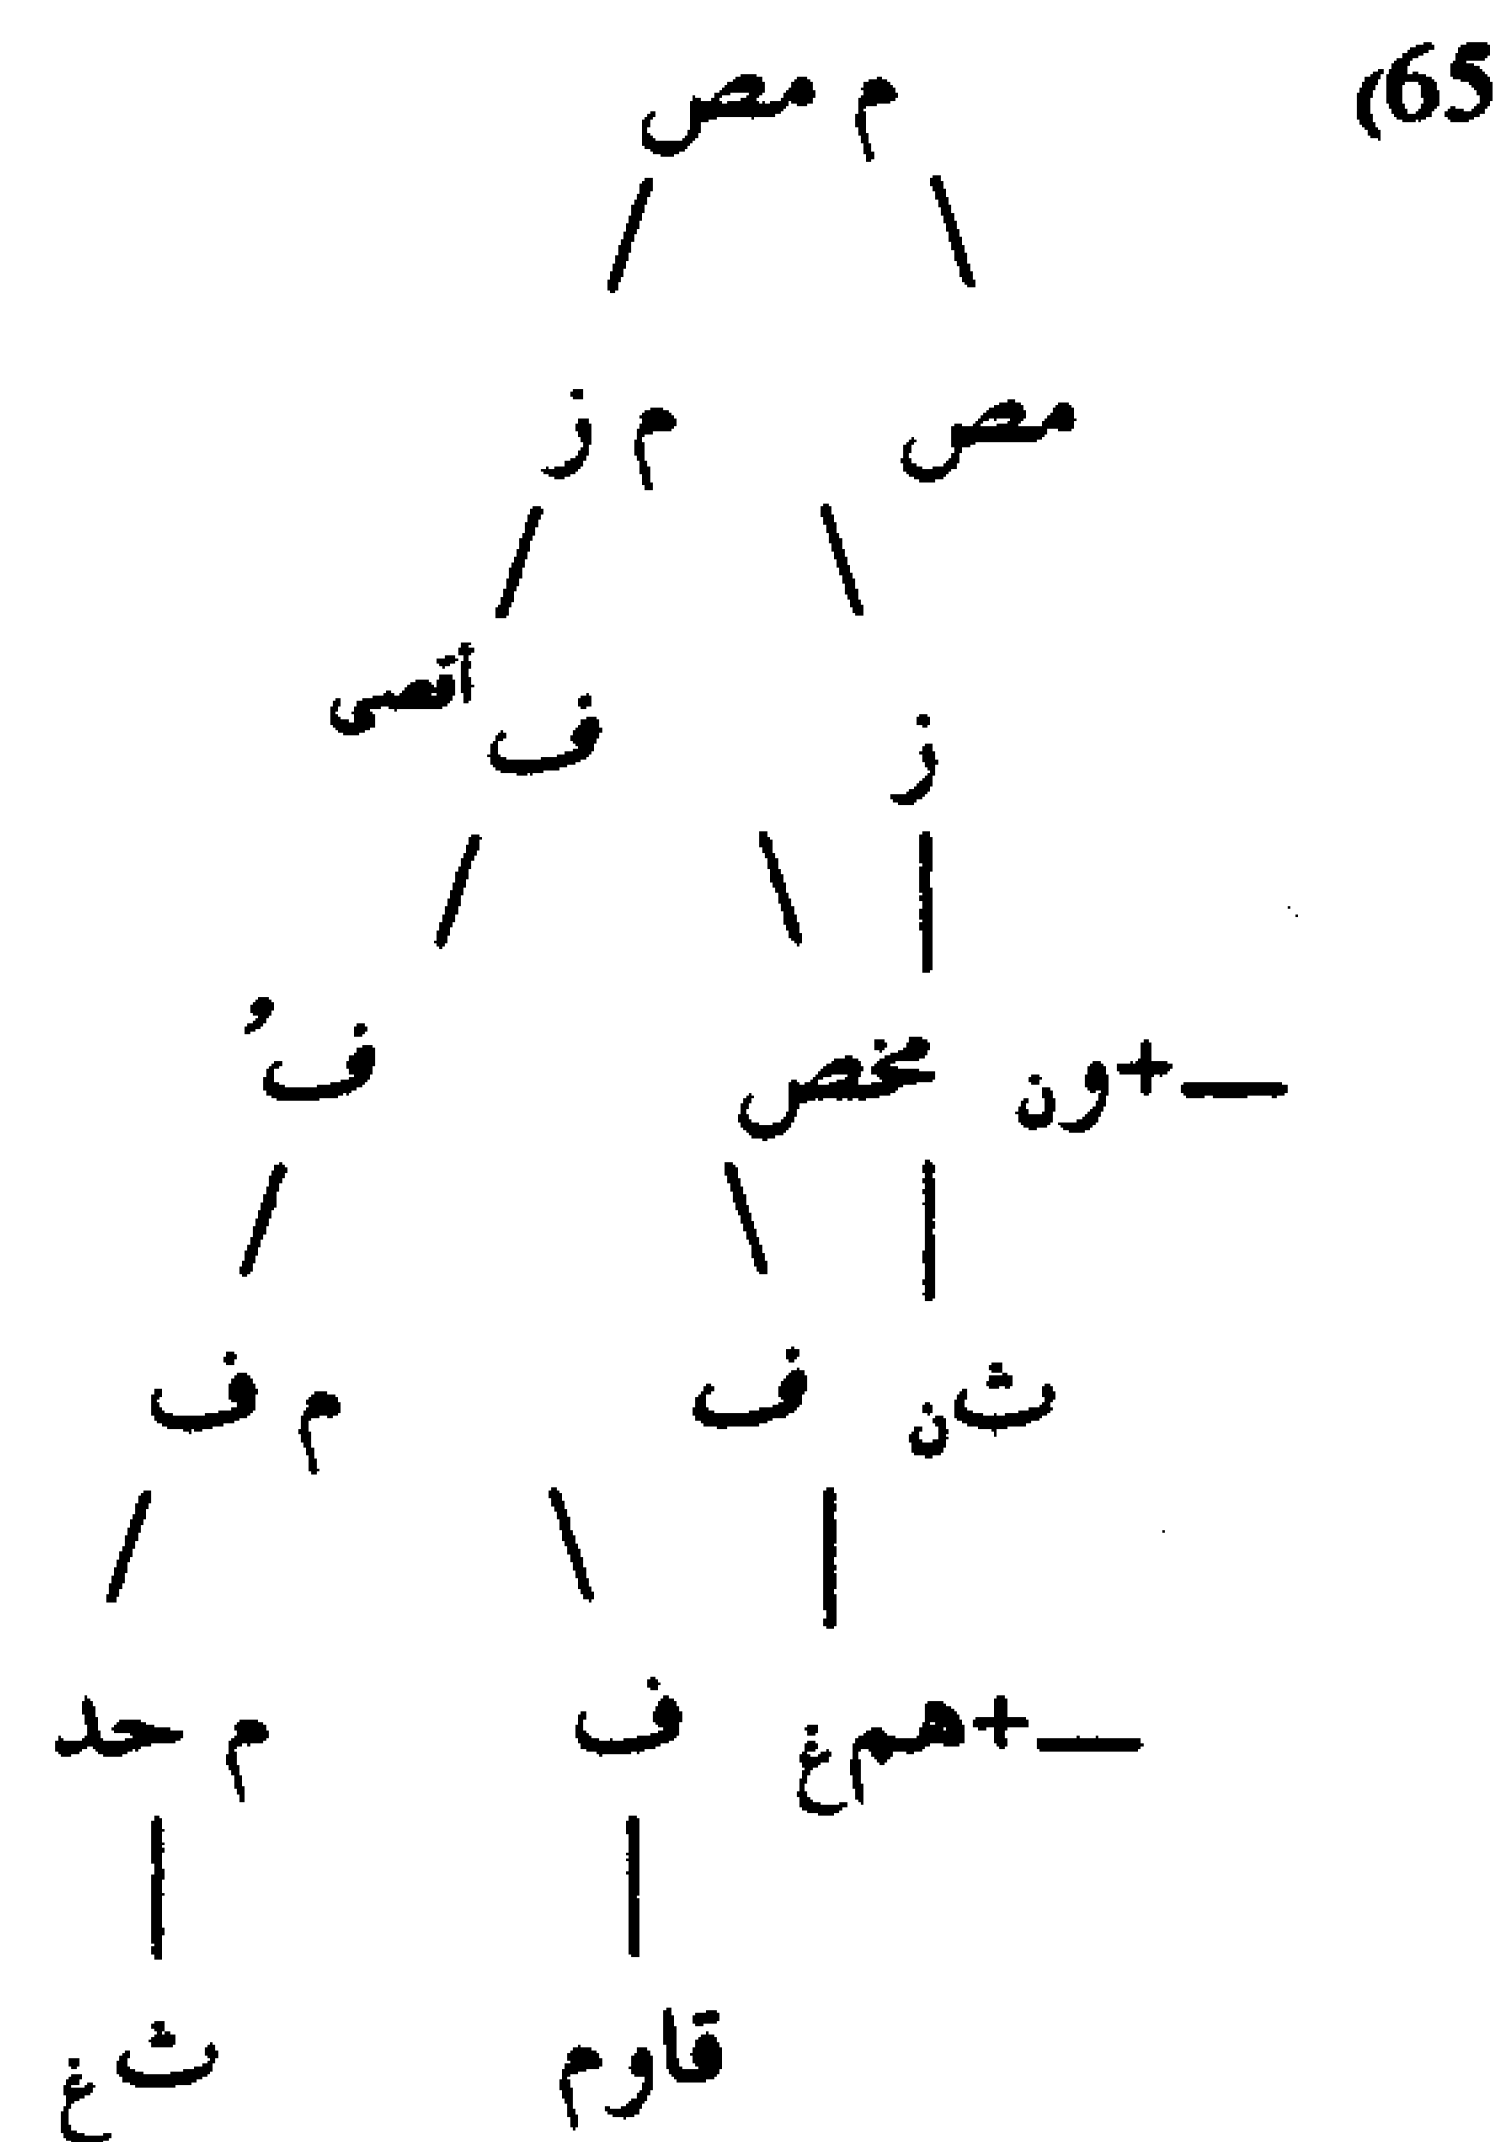 (65
م مص
مص م ز
ز ف أقصى
ــ+ون مخص فُ
ث ن ف م ف
ــ+هم غ ف م حد
قاوم ث غ